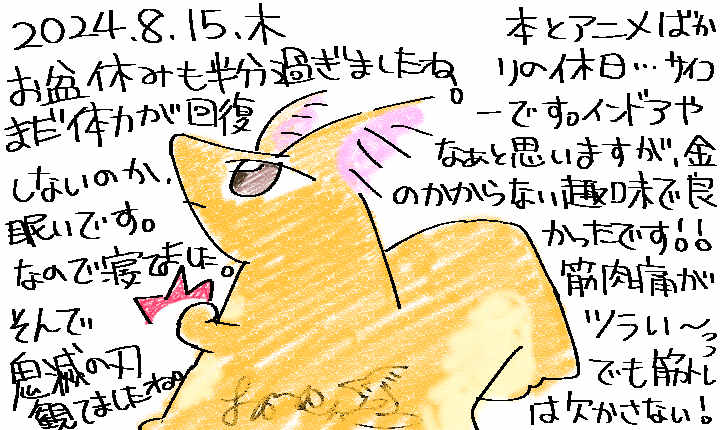 2024.8.15.木
お盆休みも半分過ぎましたね。
まだ体力が回復
しないのか、
眠いです。
なので寝てました。
そんで
鬼滅の刃
観てましたね。
本とアニメばか
りの休日…サイコ
ーです。インドアや
なぁと思いますが、金
のかからない趣味で良
かったです!!
筋肉痛が
ツラい〜っっ
でも筋トレ
は欠かさない!